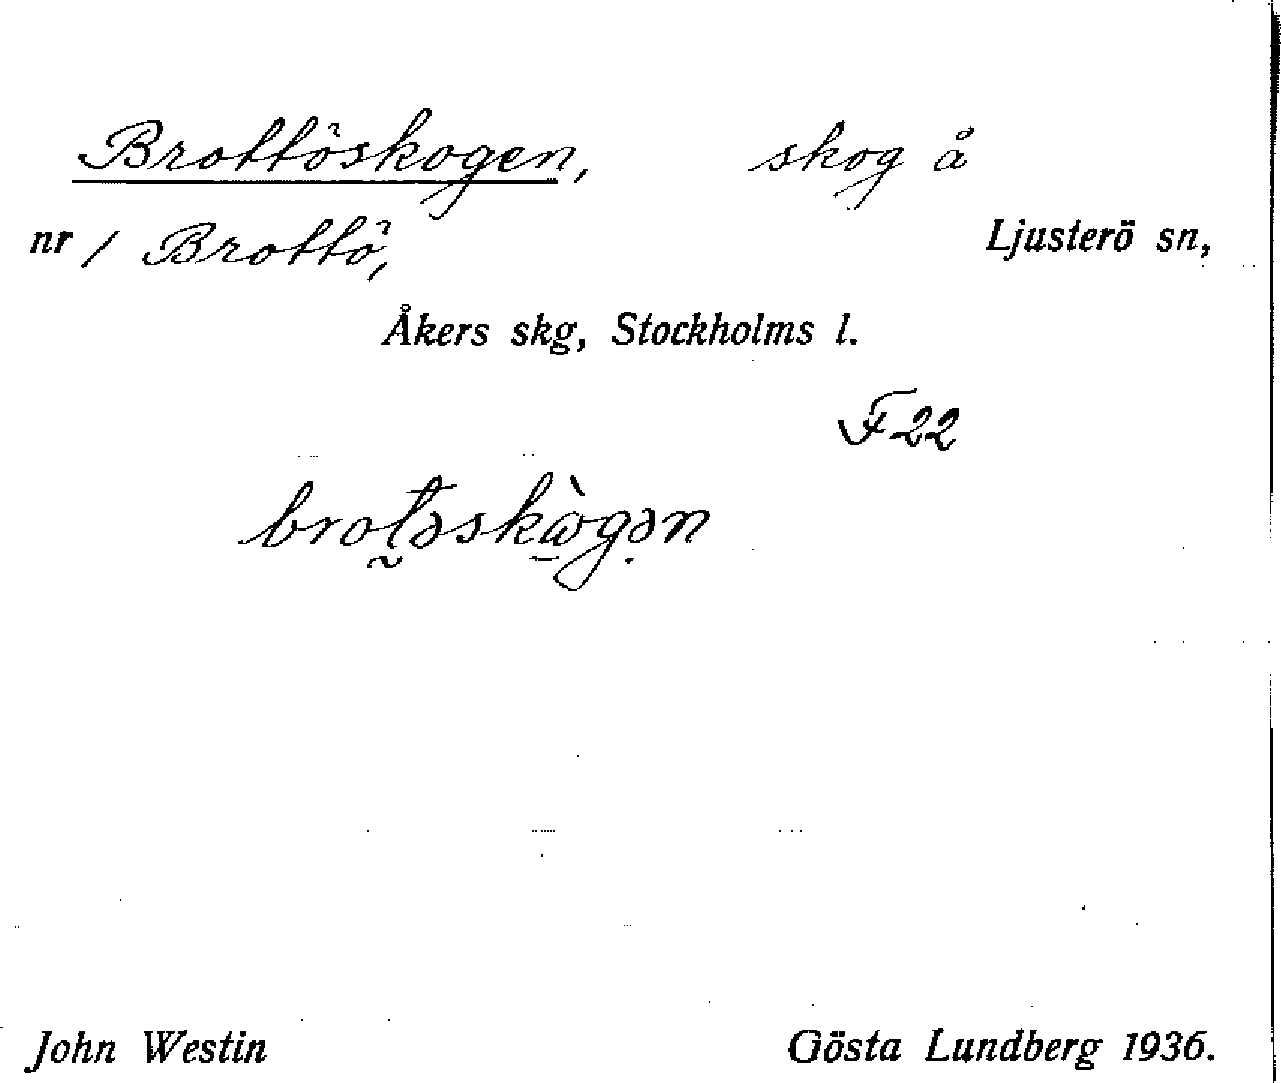 Brottöskogen, skog å
nr 1 Brottö, Ljusterö sn,
Åkers skg, Stockholms l.
F22
brot̰əskὼgən
John Westin Gösta Lundberg 1936.